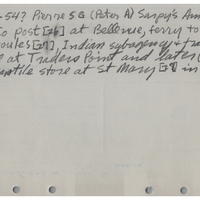 -54? Pierre S G (Peter A) Sarpy's Am
Co post [26] at Bellevue, ferry to
oules [27], Indian subagency & tra
e at Traders Point and later (
antile store at St Mary [29] in